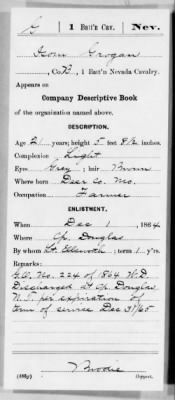 G | 1 Batt'n Cav. | Nev.
Grogan
, Co. B, 1 Batt'n Nevada Cavalry.
Appears on
Company Descriptive Book
of the organization named above.
DESCRIPTION.
Age 21 years; height 5 feet 8 1/2 inches.
Complexion Light
Eyes Grey ; hair Brown
Where born Co. Mo.
Occupation Farmer
ENLISTMENT.
When Dec 1 , 1864
Where Cp. Douglas
By whom Lt. Ellsworth ; term 1 y'rs.
Remarks:
G.O. No. 224 of 1864 W.D.
Discharged at Cp. Douglas
U.T. per expiration of
term of service Dec 31/65
Copyist.